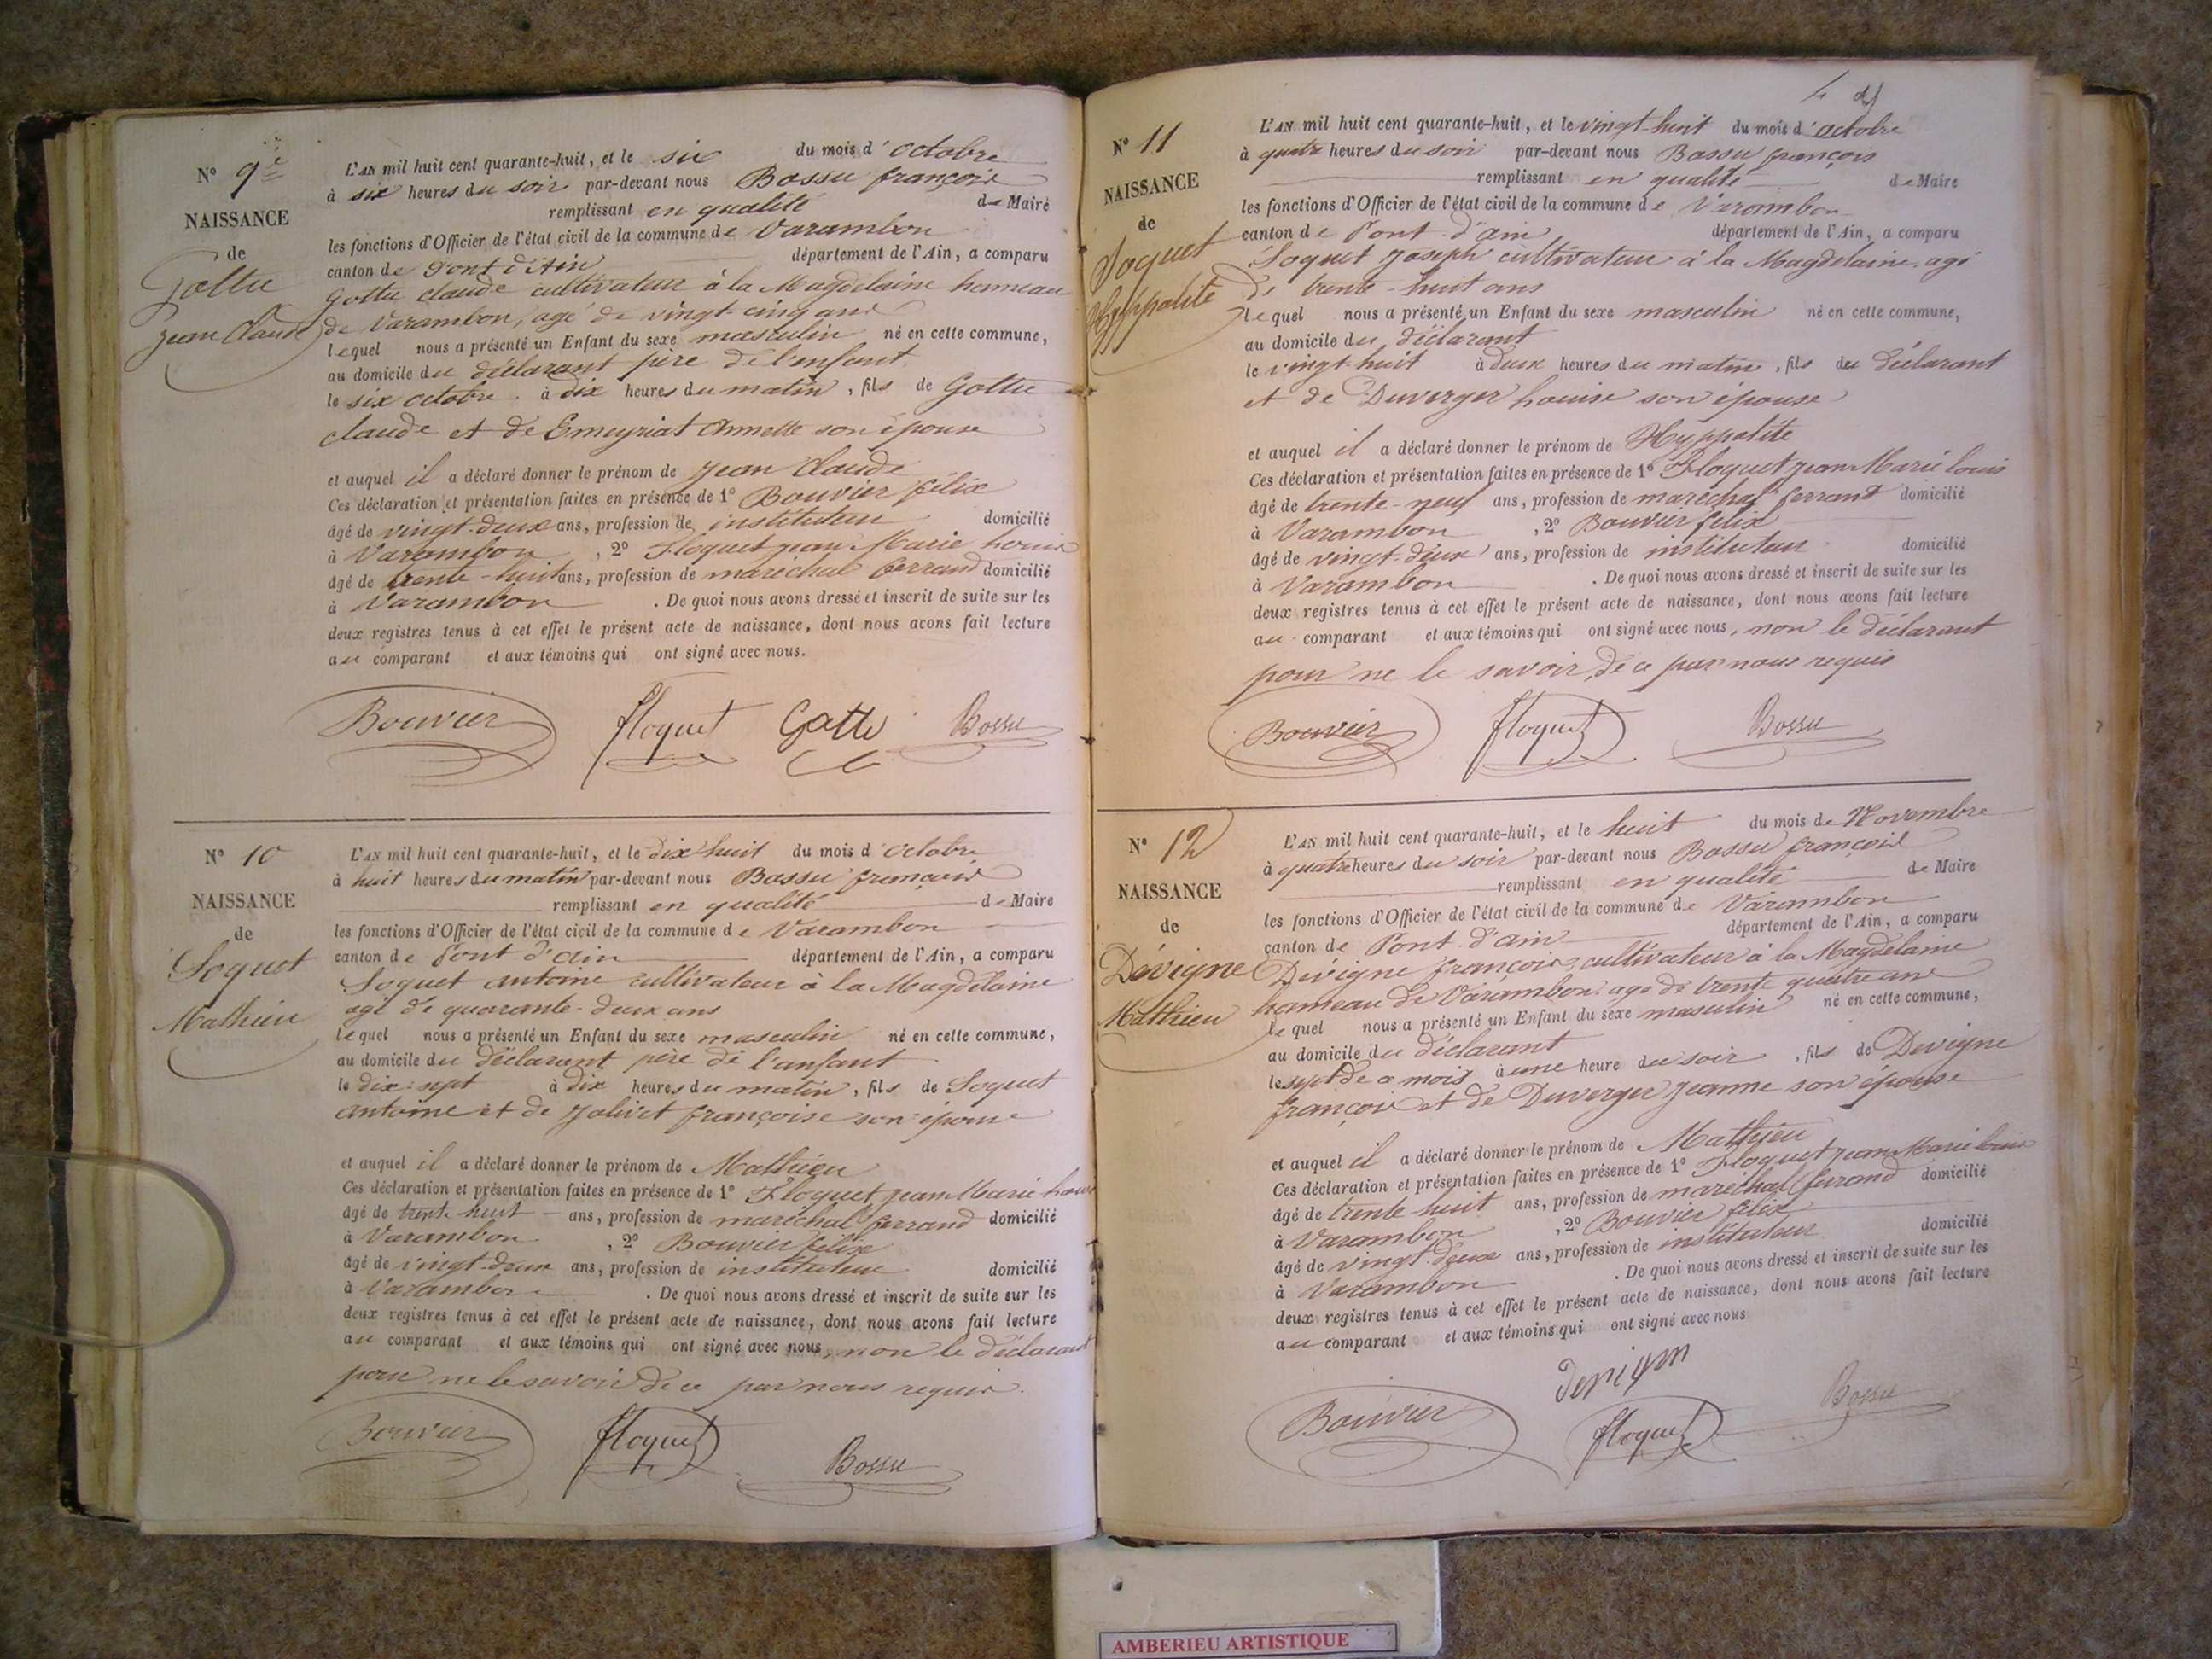 N° 9e
NAISSANCE
de
Gottu
Jean Claude
L'AN mil huit cent quarante-huit, et le six du mois d' octobre
à six heures du soir par-devant nous Bossu françois
remplissant en qualité de Maire
les fonctions d'Officier de l'état civil de la commune de Varambon
canton de Pont d'Ain département de l'Ain, a comparu
Gottu claude cultivateur à la Magdelaine hameau
de Varambon, agé de vingt-cinq ans
lequel nous a présenté un Enfant du sexe masculin né en cette commune,
au domicile du déclarant père de l'enfant
le six octobre à dix heures du matin, fils de Gottu
claude et de Emeyriat Annette son épouse
et auquel il a déclaré donner le prénom de Jean Claude
Ces déclaration et présentation faites en présence de 1° Bouvier félix
âgé de vingt-deux ans, profession de instituteur domicilié
à Varambon, 2° Floquet jean Marie Louis
âgé de trente-huit ans, profession de maréchal ferrand domicilié
à Varambon. De quoi nous avons dressé et inscrit de suite sur les
deux registres tenus à cet effet le présent acte de naissance, dont nous avons fait lecture
au comparant et aux témoins qui ont signé avec nous.
Bouvier floquet Gottu Bossu
N° 10
NAISSANCE
de
Soquet
Mathieu
L'AN mil huit cent quarante-huit, et le dix huit du mois d'octobre
à huit heures du matin par-devant nous Bossu françois
remplissant en qualité de Maire
les fonctions d'Officier de l'état civil de la commune de Varambon
canton de Pont d'ain département de l'Ain, a comparu
Soquet antoine cultivateur à la Magdelaine
agé de quarante-deux ans
lequel nous a présenté un Enfant du sexe masculin né en cette commune,
au domicile du déclarant père de l'anfant
le dix-sept à dix heures du matin, fils de Soquet
antoine et de Jolivet françoise son épouse
et auquel il a déclaré donner le prénom de Mathieu
Ces déclaration et présentation faites en présence de 1° Floquet jean Marie Louis
âgé de trente huit ans, profession de maréchal ferrand domicilié
à Varambon, 2° Bouvier félix
âgé de vingt-deux ans, profession de instituteur domicilié
à Varambon. De quoi nous avons dressé et inscrit de suite sur les
deux registres tenus à cet effet le présent acte de naissance, dont nous avons fait lecture
au comparant et aux témoins qui ont signé avec nous, non le déclarant
pour ne le savoir de ce par nous requis.
Bouvier floquet Bossu
N° 11
NAISSANCE
de
Soquet
Hyppolite
L'AN mil huit cent quarante-huit, et le vingt-huit du mois d'octobre
à quatre heures du soir par-devant nous Bossu françois
remplissant en qualité de Maire
les fonctions d'Officier de l'état civil de la commune de Varambon
canton de Pont-d'ain département de l'Ain, a comparu
Soquet Joseph cultivateur à la Magdelaine, agé
de trente-huit ans
lequel nous a présenté un Enfant du sexe masculin né en cette commune,
au domicile du déclarant
le vingt-huit à deux heures du matin, fils du déclarant
et de Duverger Louise son épouse
et auquel il a déclaré donner le prénom de Hyppolite
Ces déclaration et présentation faites en présence de 1° Floquet jean Marie louis
âgé de trente-neuf ans, profession de maréchal ferrant domicilié
à Varambon, 2° Bouvier félix
âgé de vingt-deux ans, profession de instituteur domicilié
à Varambon. De quoi nous avons dressé et inscrit de suite sur les
deux registres tenus à cet effet le présent acte de naissance, dont nous avons fait lecture
au comparant et aux témoins qui ont signé avec nous, non le déclarant
pour ne le savoir, de ce par nous requis
Bouvier floquet Bossu
N° 12
NAISSANCE
de
Dévigne
Mathieu
L'AN mil huit cent quarante-huit, et le huit du mois de Novembre
à quatre heures du soir par-devant nous Bossu françois
remplissant en qualité de Maire
les fonctions d'Officier de l'état civil de la commune de Varambon
canton de Pont-d'ain département de l'Ain, a comparu
Dévigne françois, cultivateur à la Magdelaine
hameau de Varambon agé de trente quatre ans
lequel nous a présenté un Enfant du sexe masculin né en cette commune,
au domicile du déclarant
le sept de ce mois à une heure du soir, fils de Devigne
françois et de Duverger jeanne son épouse
et auquel il a déclaré donner le prénom de Mathieu
Ces déclaration et présentation faites en présence de 1° Floquet jean Marie louis
âgé de trente huit ans, profession de maréchal ferrand domicilié
à Varambon, 2° Bouvier félix
âgé de vingt-deux ans, profession de instituteur domicilié
à Varambon. De quoi nous avons dressé et inscrit de suite sur les
deux registres tenus à cet effet le présent acte de naissance, dont nous avons fait lecture
au comparant et aux témoins qui ont signé avec nous
devigne
Bouvier floquet Bossu
AMBERIEU ARTISTIQUE